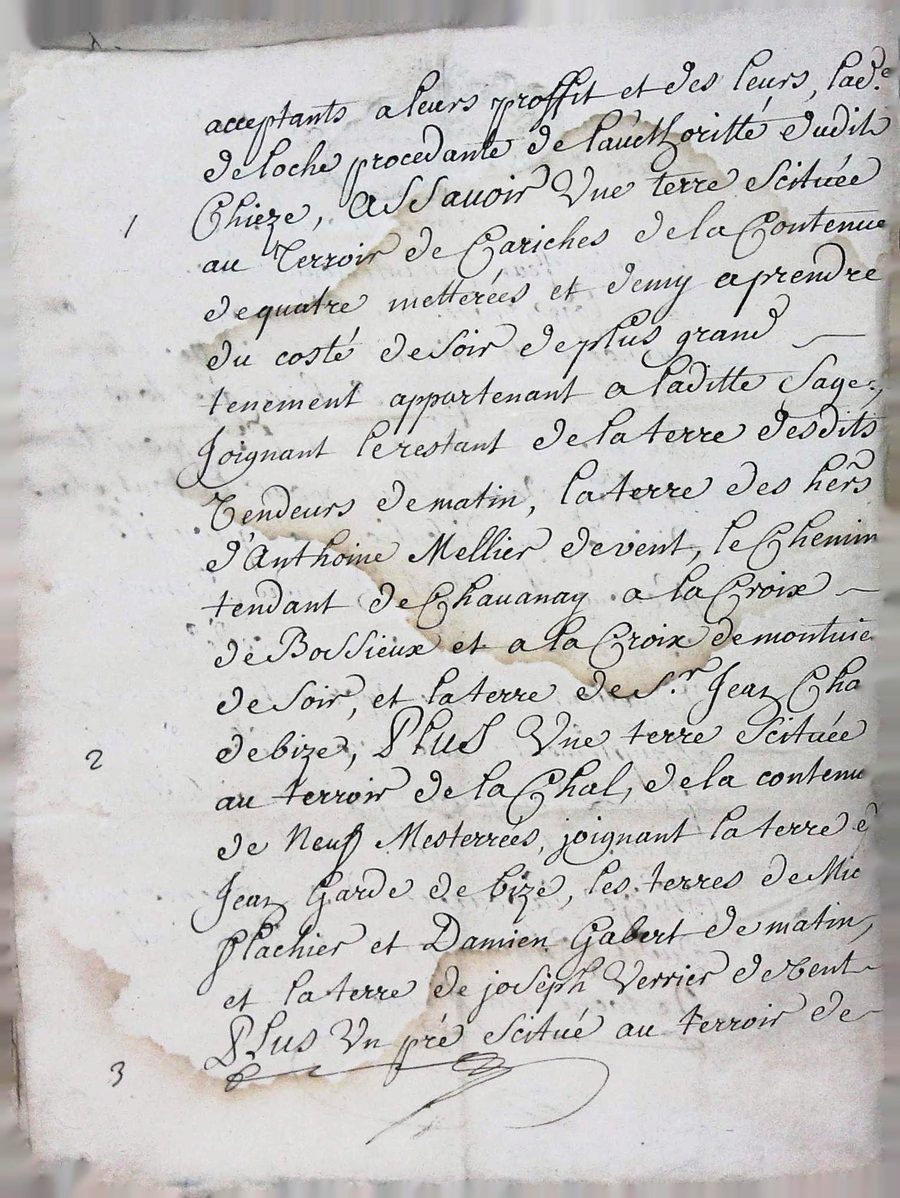 acceptants a leurs proffit et des leurs, lad.e
deloche procedante de l'aucthoritté dudit
1 Chieze, Assavoir Une terre scituée
au Terroir de Cariches de la Contenue
de quatre metterées et demy a prendre
du costé de soir de plus grand —
tenement appartenant a laditte Sage,
Joignant le restant de la terre desdits
Vendeurs de matin, la terre des hers
d'Anthoine Mellier de vent, le Chemin
tendant de Chavanay a la Croix —
de Bossieux et a la Croix de montuie
de soir, et la terre de S.r Jean Cha
2 de bize, Plus Une terre scituée
au terroir de la Chal, de la contenu
de Neuf Mesterrées, joignant la terre d
Jean Garde de bize, les terres de Mic
Plachier et Damien Gabert de matin,
et la terre de joseph Verrier de vent
3 Plus Un pré scitué au terroir de